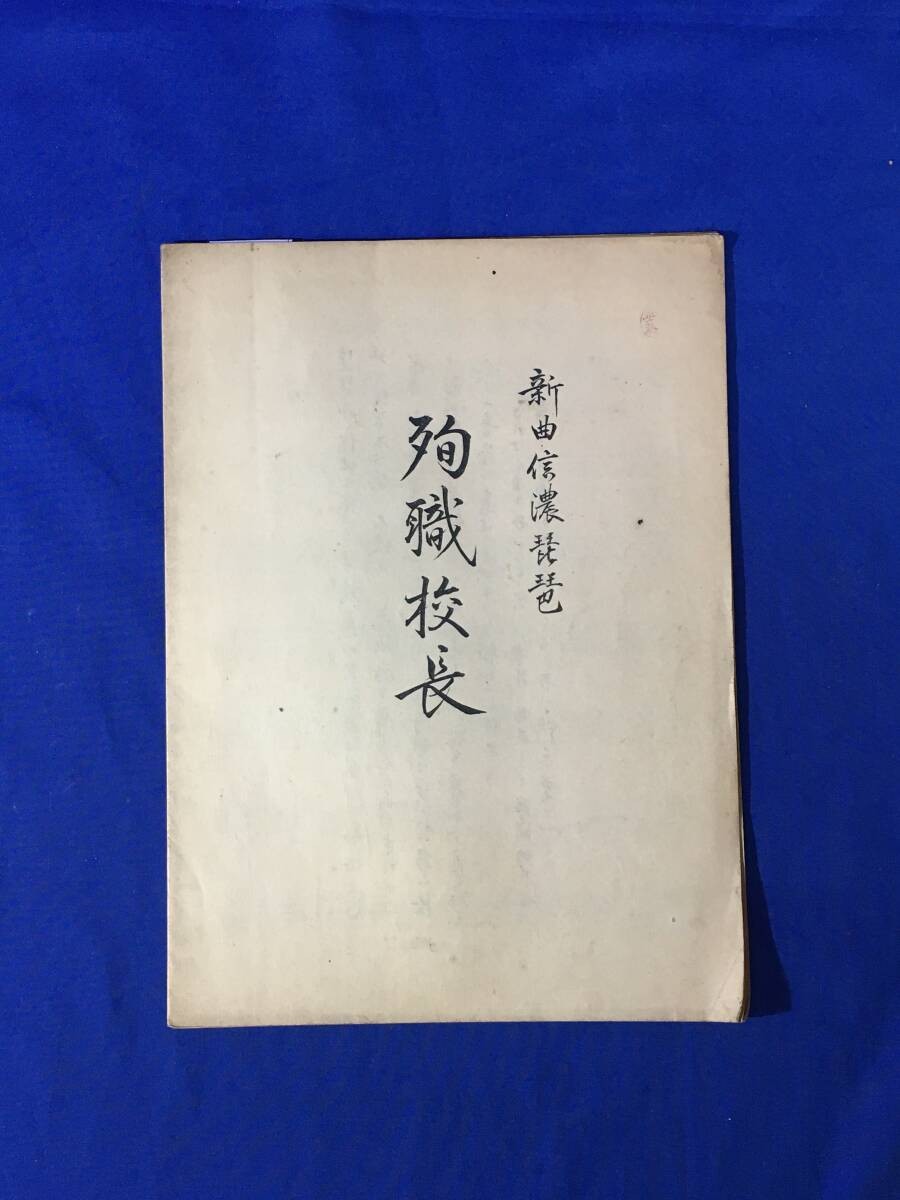 新曲信濃琵琶
殉職校長